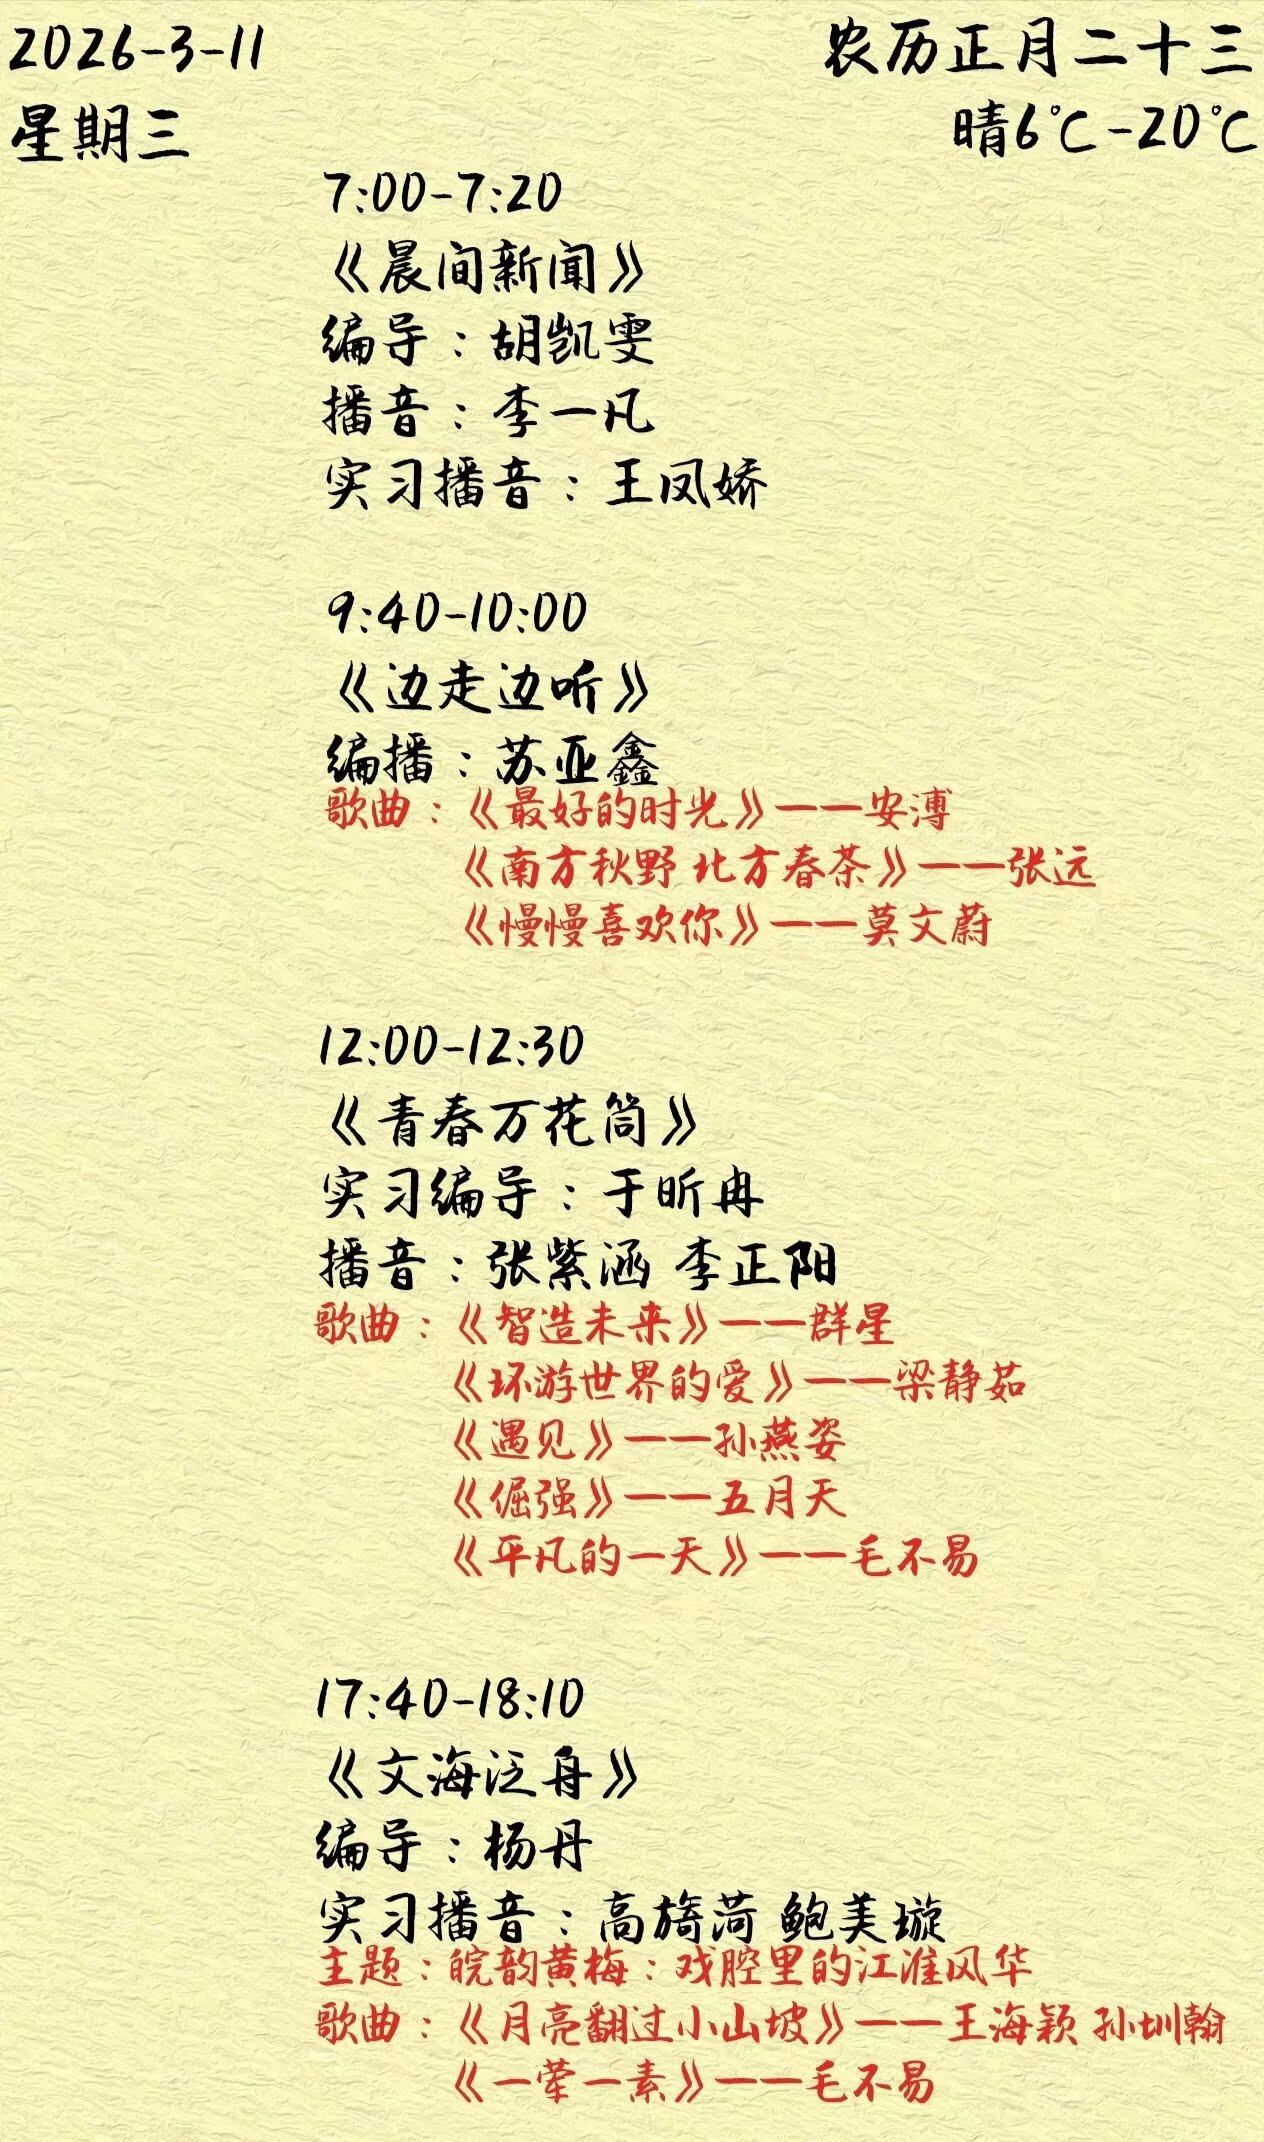 2026-3-11
农历正月二十三
星期三
晴6℃-20℃
7:00-7:20
《晨间新闻》
编导：胡凯雯
播音：李一凡
实习播音：王凤娇
9:40-10:00
《边走边听》
编播：苏亚鑫
歌曲：《最好的时光》——安溥
《南方秋野 北方春茶》——张远
《慢慢喜欢你》——莫文蔚
12:00-12:30
《青春万花筒》
实习编导：于昕冉
播音：张紫涵 李正阳
歌曲：《智造未来》——群星
《环游世界的爱》——梁静茹
《遇见》——孙燕姿
《倔强》——五月天
《平凡的一天》——毛不易
17:40-18:10
《文海泛舟》
编导：杨丹
实习播音：高旖菏 鲍美璇
主题：皖韵黄梅：戏腔里的江淮风华
歌曲：《月亮翻过小山坡》——王海颖 孙圳翰
《一荤一素》——毛不易